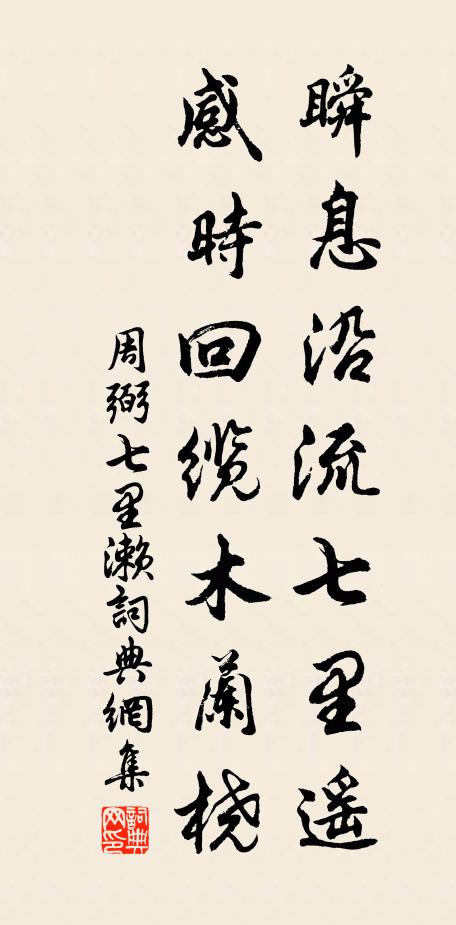 瞬息沿流七里遥
感時回纜木蘭橈
周弼七里瀨詞典網集
詞典網印